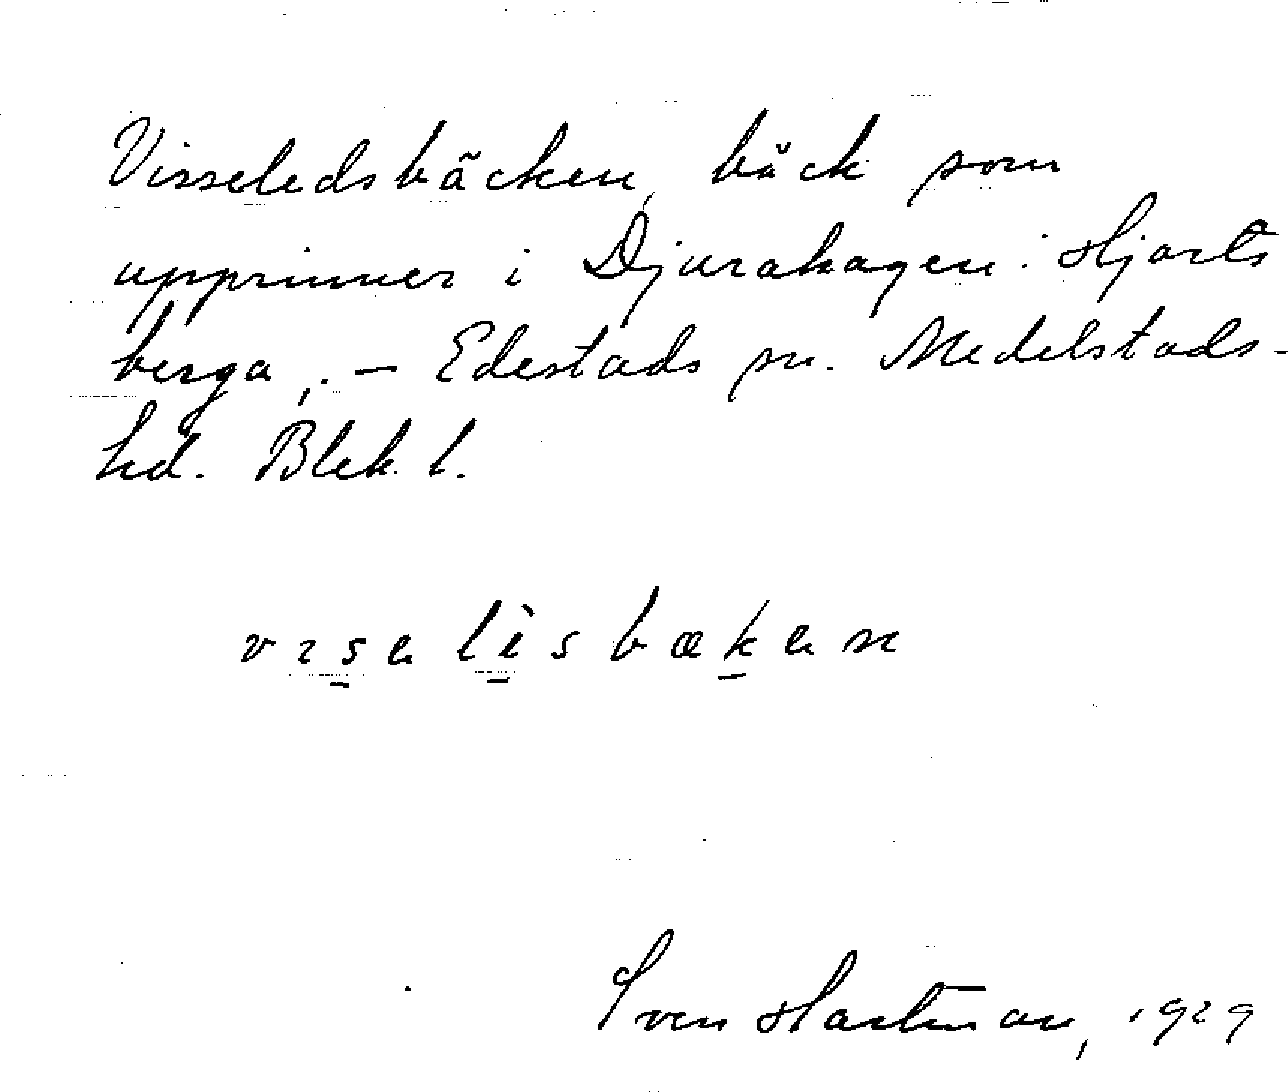 Visseledsbäcken, bäck som
upprinner i Djurahagen i Hjarts
berga, - Edestads sn. Medelstads-
hd. Blek. l.
vɪse lìsbæken
Sven Hartman, 1929